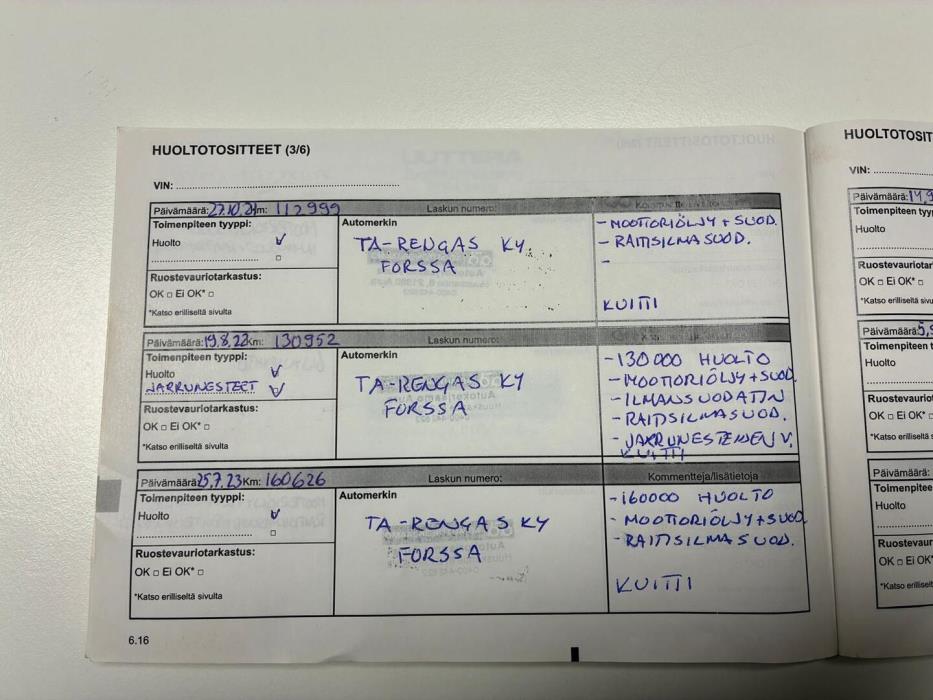 HUOLTOTOSITTEET (3/6)
VIN:
Päivämäärä: 27.10.21 Km: 112999 Laskun numero:
Toimenpiteen tyyppi: Automerkin
Huolto V
TA-RENGAS KY.
FORSSA
- MOOTTORIÖLJY + SUOD.
- RAITISILMASUOD.
-
KUITTI
Ruostevauriotarkastus:
OK □ Ei OK* □
*Katso erilliseltä sivulta
Päivämäärä: 19.8.22 Km: 130952 Laskun numero:
Toimenpiteen tyyppi: Automerkin
Huolto V
JARRUNGSTEET V
TA-RENGAS KY
FORSSA
- 130000 HUOLTO
- MOOTTORIÖLJY + SUOD.
- ILMANSUODATIN
- RAITISILMASUOD.
- JARRUNESTEIDEN V.
KUITTI
Ruostevauriotarkastus:
OK □ Ei OK* □
*Katso erilliseltä sivulta
Päivämäärä: 25.7.23 Km: 160626 Laskun numero: Kommentteja/lisätietoja
Toimenpiteen tyyppi: Automerkin
Huolto V
TA-RENGAS KY
FORSSA
- 160000 HUOLTO
- MOOTTORIÖLJY + SUOD
- RAITISILMASUOD.
KUITTI
Ruostevauriotarkastus:
OK □ Ei OK* □
*Katso erilliseltä sivulta
6.16
HUOLTOTOSIT
VIN:
Päivämäärä:
Toimenpiteen
Huolto
Ruostevaurio
OK □ Ei OK*
*Katso erilliseltä
Päivämäärä:
Toimenpiteen
Huolto
Ruostevaur
OK □ Ei OK*
*Katso erilliseltä
Päivämäärä:
Toimenpitee
Huolto
Ruostevaur
OK □ Ei OK
*Katso erillisel